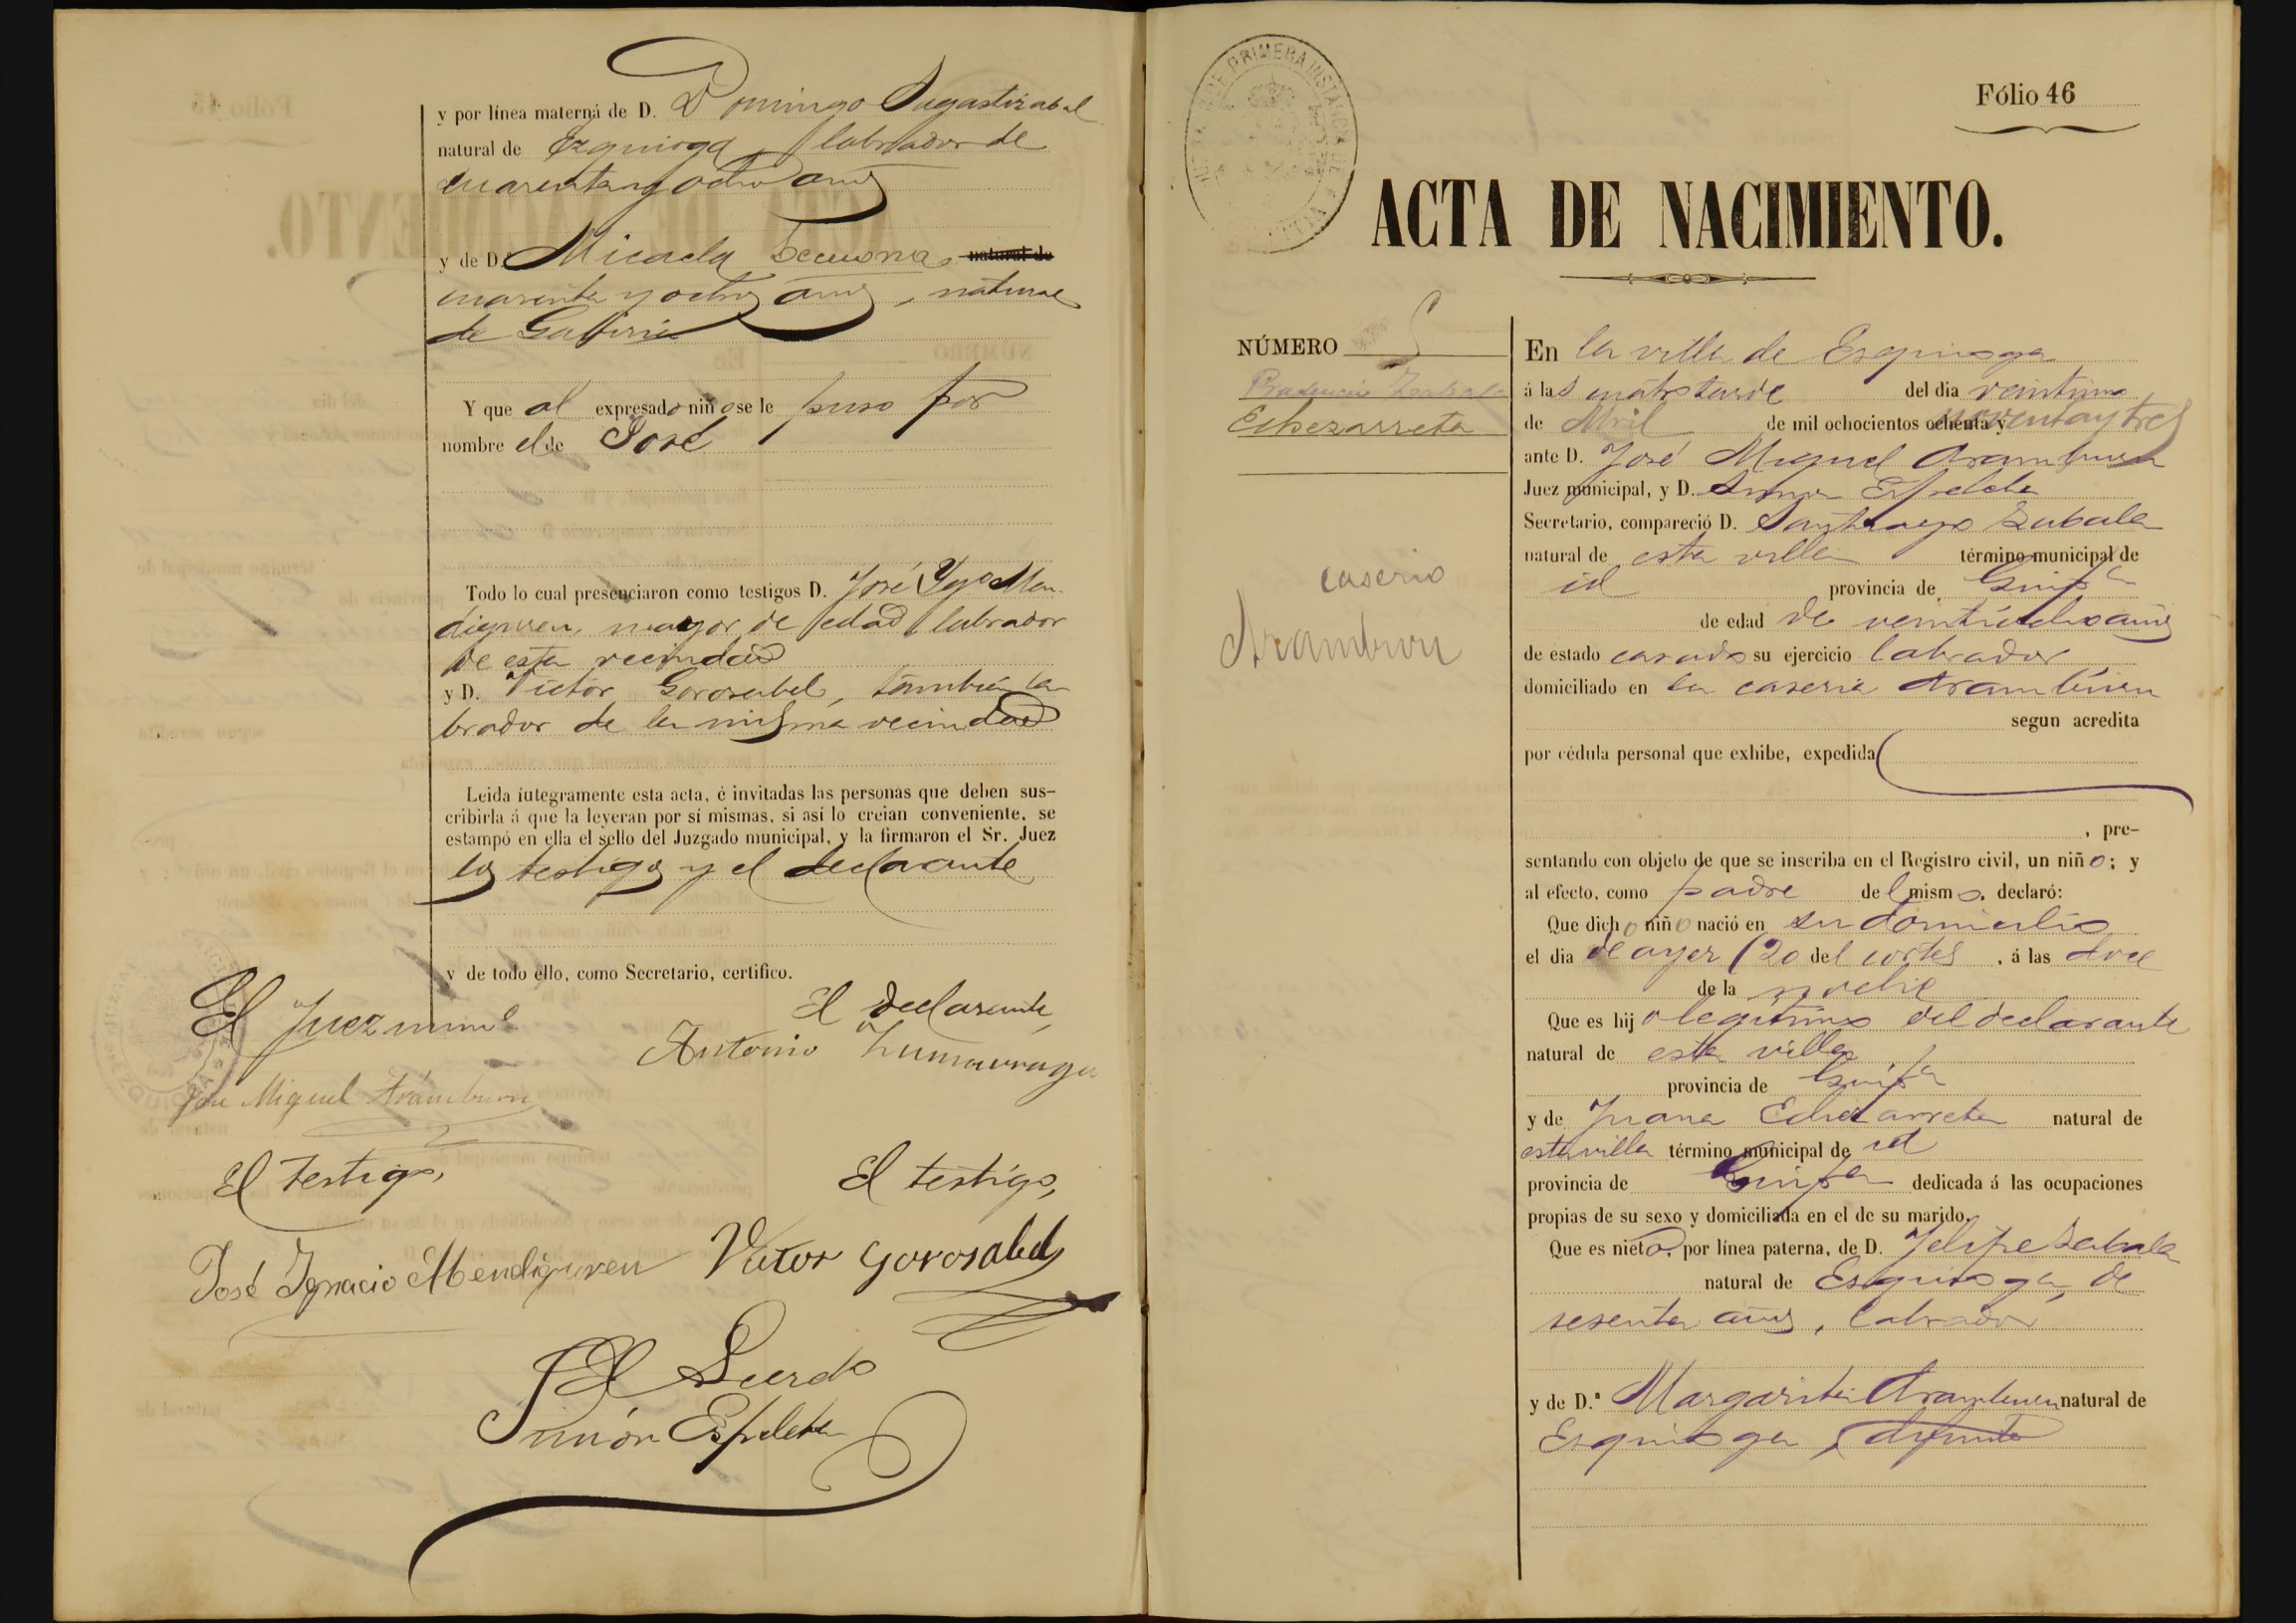 y por línea materna de D. Domingo Sagastizabal
natural de Ezquioga, labrador de
cuarenta y ocho años
y de D.ª Micaela Lecuona natural de
cuarenta y ocho años, natural
de Gaviria
Y que al expresado niño se le puso por
nombre el de José
Todo lo cual presenciaron como testigos D. José Ygo Men-
diguren, mayor de edad, labrador
de esta vecindad
y D. Victor Gorosabel, también la
brador de la misma vecindad
Leida íntegramente esta acta, é invitadas las personas que deben sus-
cribirla á que la leyeran por sí mismas, si así lo creian conveniente, se
estampó en ella el sello del Juzgado municipal, y la firmaron el Sr. Juez
los testigos y el declarante
y de todo ello, como Secretario, certifico.
El Juez munl.
El declarante,
Antonio Zumarraga
José Miguel Aramburu
El testigo,
El testigo,
José Ignacio Mendiguren
Victor Gorosabel
El
Simón Espeleta
Fólio 46
DE PRIMERA INSTANCIA DE
ACTA DE NACIMIENTO.
NÚMERO
Prudencio Zabala
Echezarreta
caserio
Aramburu
En la villa de Esquioga
á las cuatro tarde del dia veintiuno
de Abril de mil ochocientos ochenta y noventa y tres
ante D. José Miguel Aramburu
Juez municipal, y D. Simon Espeleta
Secretario, compareció D. Santiago Zabala
natural de esta villa término municipal de
id provincia de Guipca
de edad de veintiocho años
de estado casado su ejercicio labrador
domiciliado en la caseria Aramburu
segun acredita
por cédula personal que exhibe, expedida
, pre-
sentando con objeto de que se inscriba en el Registro civil, un niño; y
al efecto, como padre del mismo, declaró:
Que dicho niño nació en su domicilio
el dia de ayer (20 del cortes, á las doce
de la noche
Que es hijo legitimo del declarante
natural de esta villa,
provincia de Guipca
y de Juana Echezarreta natural de
esta villa término municipal de id
provincia de Guipca dedicada á las ocupaciones
propias de su sexo y domiciliada en el de su marido.
Que es nieto, por línea paterna, de D. Felipe Zabala
natural de Esquioga, de
sesenta años, labrador
y de D.ª Margarita Aramburu natural de
Esquioga, difunta